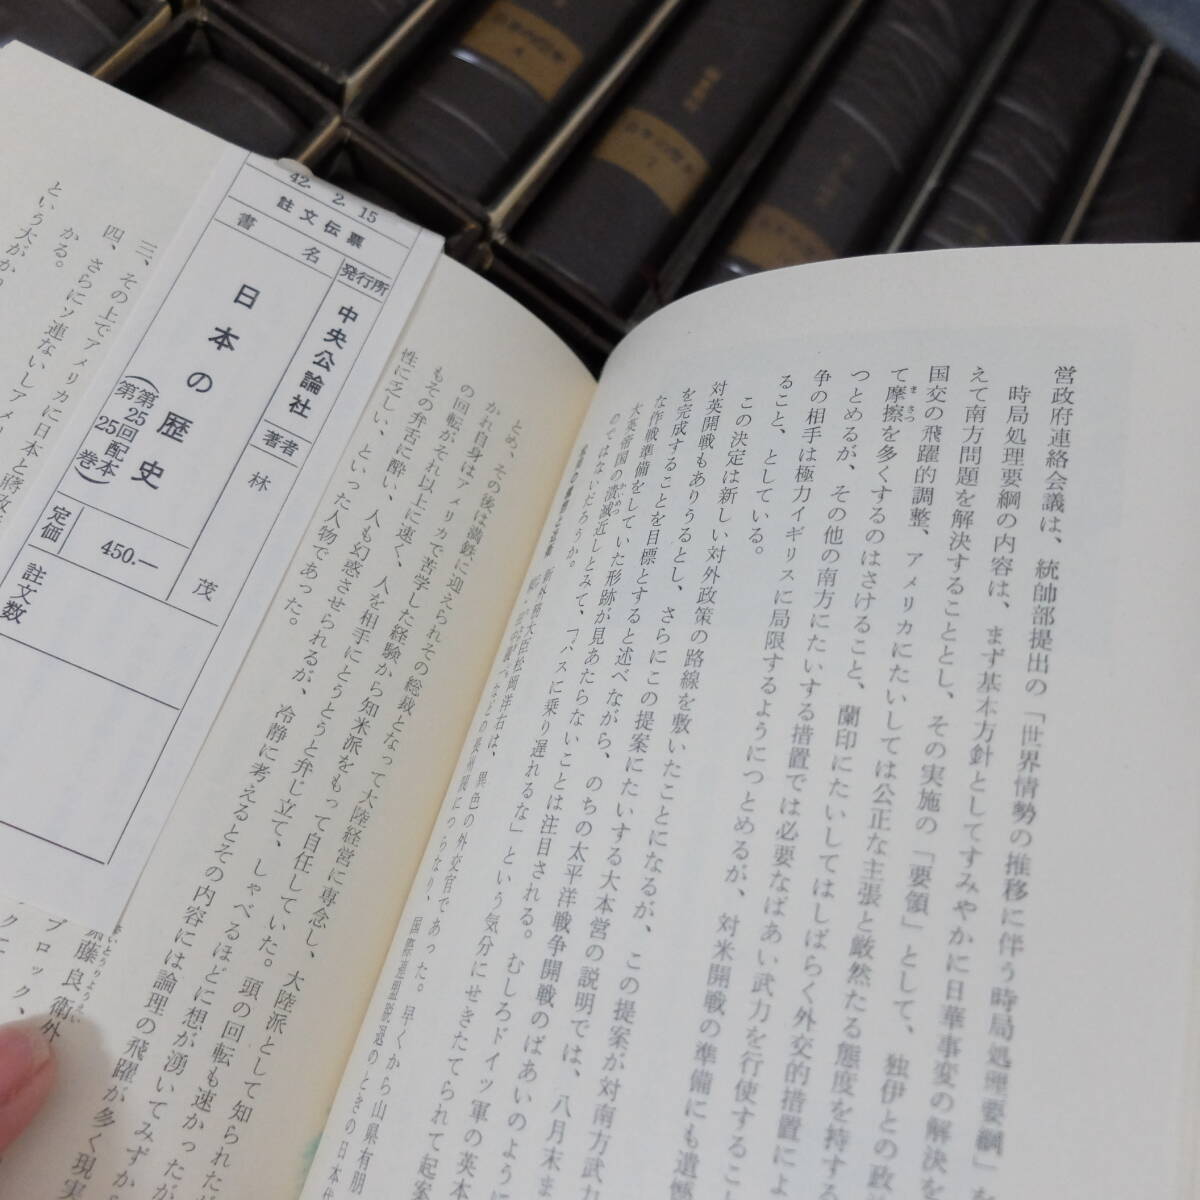 営政府連絡会議は、統帥部提出の「世界情勢の推移に伴う時局処理要綱」を
時局処理要綱の内容は、まず基本方針としてすみやかに日華事変の解決を
えて南方問題を解決することとし、その実施の「要領」として、独伊との政
国交の飛躍的調整、アメリカにたいしては公正な主張と厳然たる態度を持する
て摩擦を多くするのはさけること、蘭印にたいしてはしばらく外交的措置によ
まさつ
つとめるが、その他の南方にたいする措置では必要なばあい武力を行使するこ
争の相手は極力イギリスに局限するようにつとめるが、対米開戦の準備にも遺憾
ること、としている。
この決定は新しい対外政策の路線を敷いたことになるが、この提案が対南方武力
対英開戦もありうるとし、さらにこの提案にたいする大本営の説明では、八月末ま
を完成することを目標とすると述べながら、のちの太平洋戦争開戦のばあいのように
な作戦準備をしていた形跡が見あたらないことは注目される。むしろドイツ軍の英本
大英帝国の潰滅近しとみて、「バスに乗り遅れるな」という気分にせきたてられて起案
のではないだろうか。
新外務大臣松岡洋右は、異色の外交官であった。早くから山県有朋
などの長州閥につらなり、国際連盟脱退のときの日本代
とめ、その後は満鉄に迎えられその総裁となって大陸経営に専念し、大陸派として知られた
かれ自身はアメリカで苦学した経験から知米派をもって自任していた。頭の回転も速かったが
の回転がそれ以上に速く、人を相手にとうとうと弁じ立て、しゃべるほどに想が湧いてみずから
もその弁舌に酔い、人も幻惑させられるが、冷静に考えるとその内容には論理の飛躍が多く現実
性に乏しい、といった人物であった。
42. 2. 15
註文伝票
書名
日本の歴史
(第25回配本
第25巻)
発行所
中央公論社
著者
林 茂
定価
450.—
註文数
三、その上でアメリカ
四、さらにソ連ないしアメリカに日本と蔣政
かる。
という大がかり
藤良衛外
ブロック、